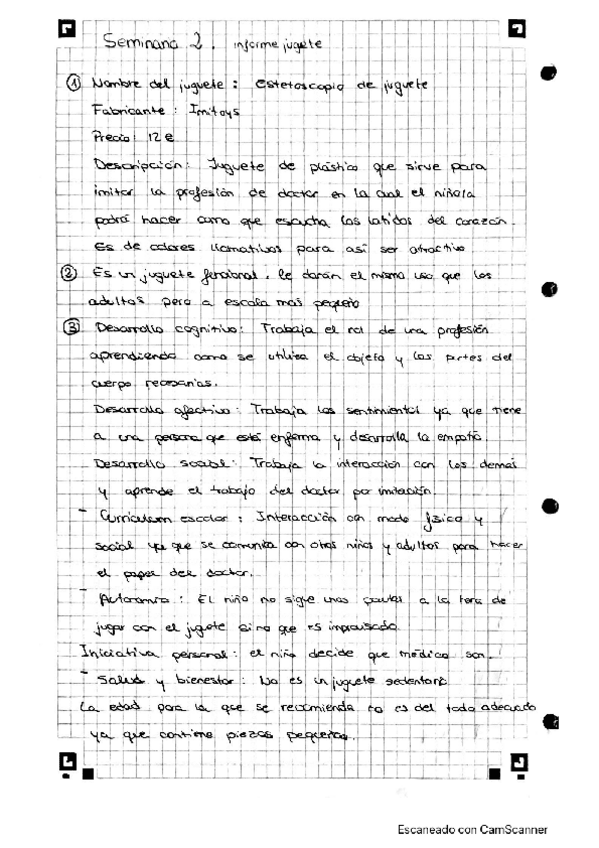 Seminario 2. informe juguete
① Nombre del juguete: Estetoscopio de juguete
Fabricante: Imitoys
Precio: 12 €
Descripción: Juguete de plástico que sirve para
imitar la profesión de doctor en la cual el niño/a
podrá hacer como que escucha los latidos del corazón.
Es de colores llamativos para así ser atractivo
② Es un juguete funcional. le darán el mismo uso que los
adultos pero a escala más pequeño
③ Desarrollo cognitivo: Trabaja el rol de una profesión
aprendiendo como se utiliza el objeto y las partes del
cuerpo necesarias.
Desarrollo afectivo: Trabaja los sentimientos ya que tiene
a una persona que está enferma y desarrolla la empatía
Desarrollo social: Trabaja la interacción con los demás
y aprende el trabajo del doctor por imitación.
- Curriculum escolar: Interacción con medio físico y
social ya que se comunica con otros niños y adultos para hacer
el papel del doctor.
- Autonomía: El niño no sigue unas pautas a la hora de
jugar con el juguete si no que es improvisado
Iniciativa personal: el niño decide que médico son.
- Salud y bienestar: No es un juguete sedentario
La edad para la que se recomienda no es del todo adecuado
ya que contiene piezas pequeñas.
Escaneado con CamScanner